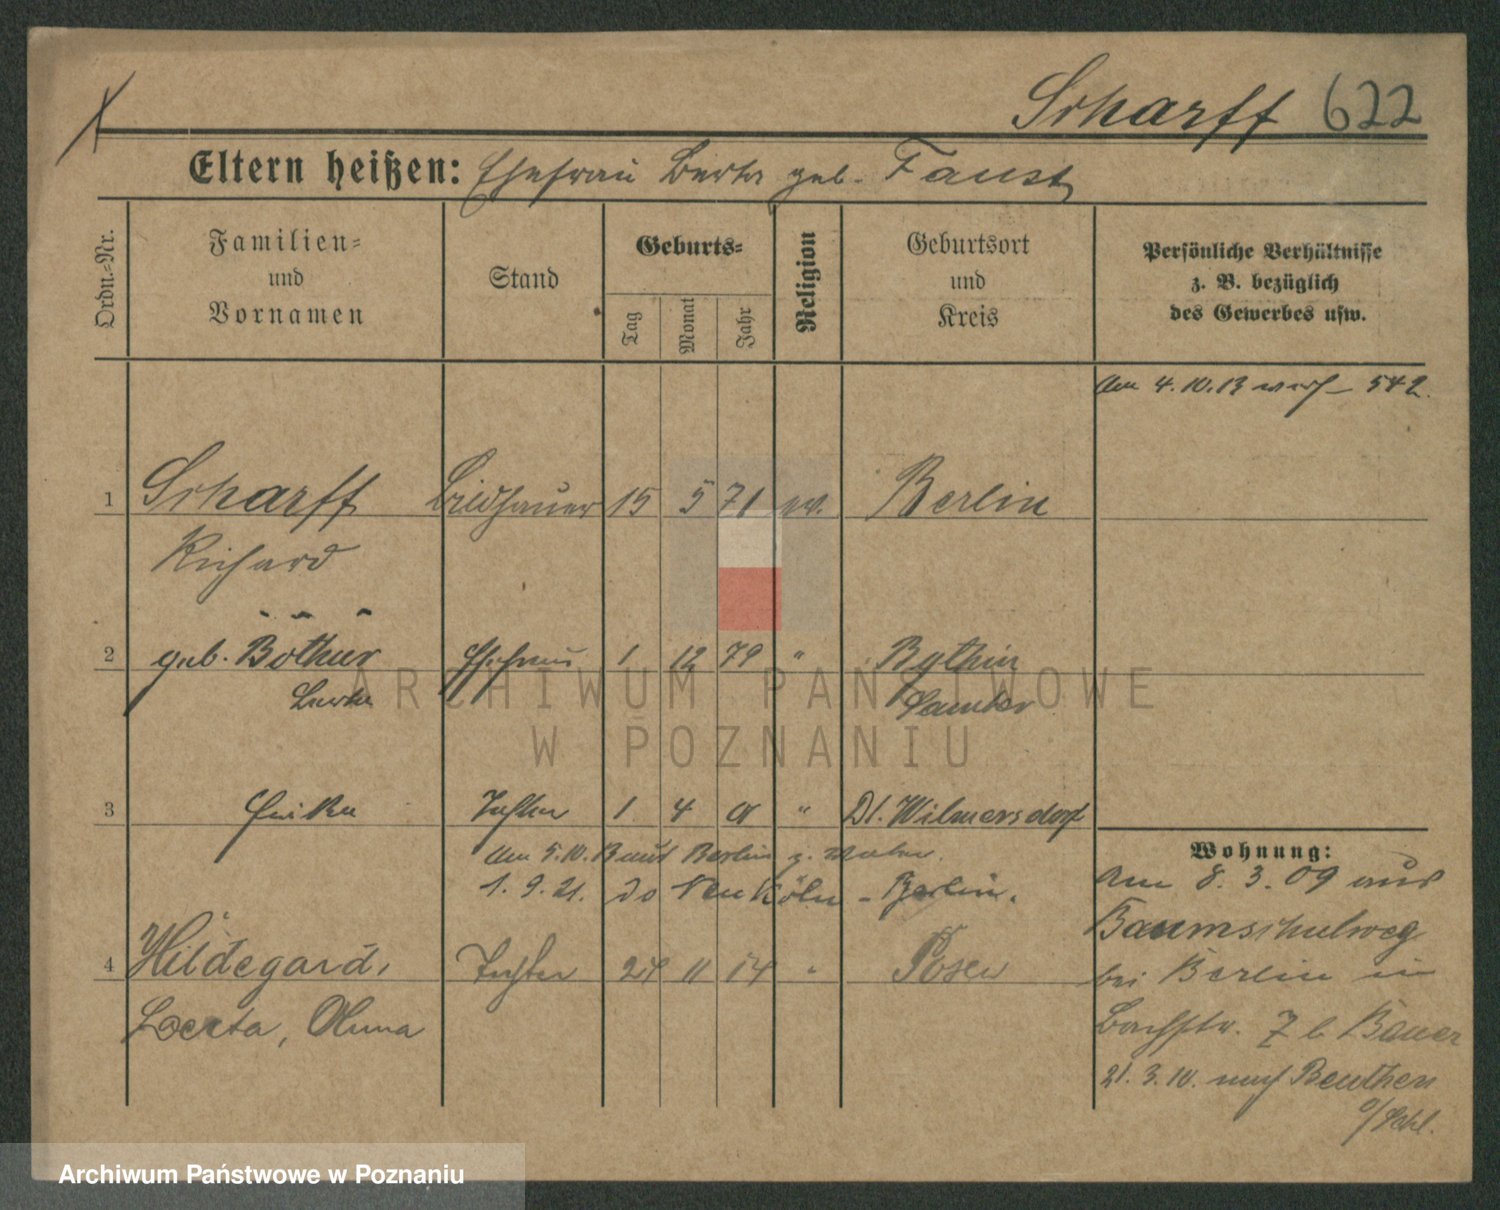 Scharff 622
Eltern heißen: Ehefrau Berta geb. Faust
Ordn.-Nr.
Familien-
und
Vornamen
Stand
Geburts-
Tag
Monat
Jahr
Religion
Geburtsort
und
Kreis
Persönliche Verhältnisse
z. B. bezüglich
des Gewerbes usw.
Am 4.10.13 542.
1 Scharff Bildhauer 15 5 71 ev. Berlin
Richard
2 geb. Böthür Ehefrau 1 12 79 " Bythin
Berta Samter
3 Erika Tochter 1. 4 01 " Dt. Wilmersdorf
Am 5.10.13 aus Berlin z.
1.9.21. do Neu Köln - Berlin.
4 Hildegard, Tochter 24 11 14 " Posen
Berta, Anna
Wohnung:
Am 8.3.09 aus
Baumschulweg
bei Berlin in
Bachstr. 7 b Bauer
21.3.10. nach Beuthen
o/Schl.
ARCHIWUM PAŃSTWOWE
W POZNANIU
Archiwum Państwowe w Poznaniu